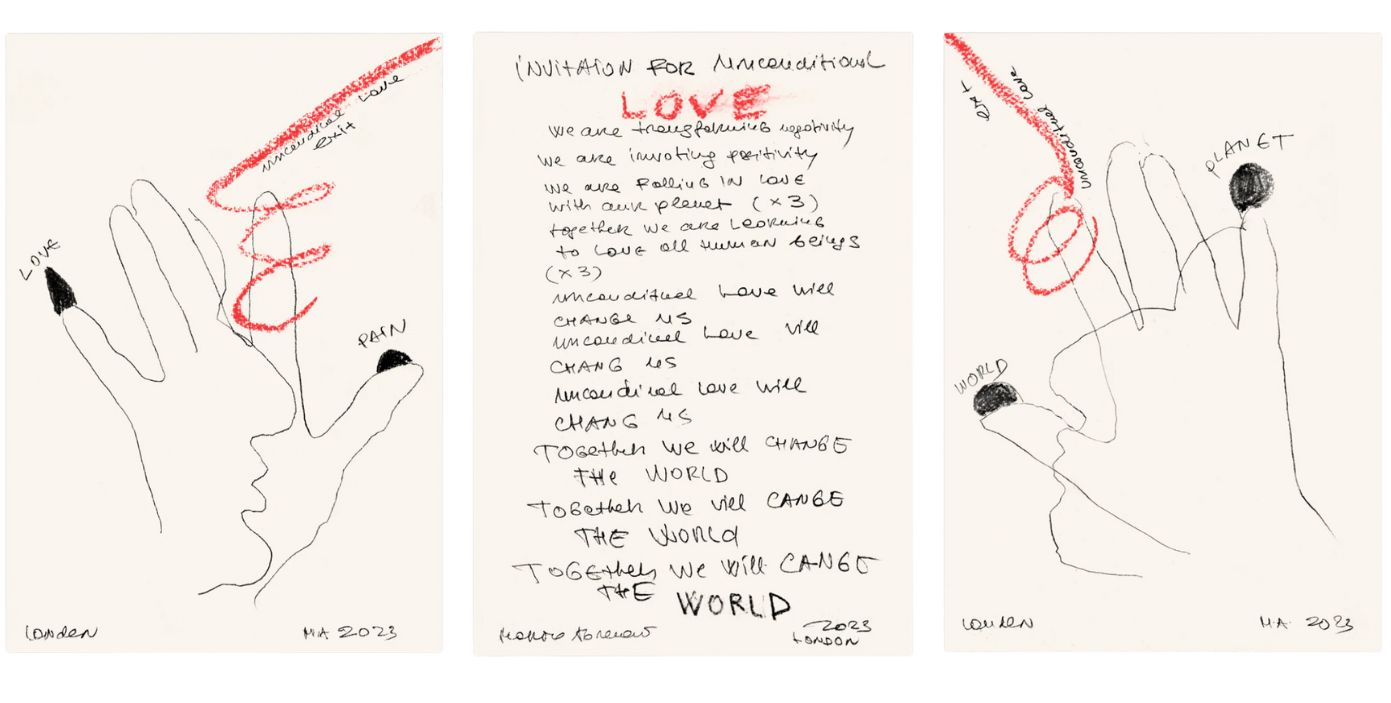 LOVE
unconditional Love
exit
PAIN
London
MA 2023
iNVitAiON FOR Unconditional
LOVE
we are transforming negativity
we are invoting positivity
we are Falling IN LOVE
with our planet (x3)
together we are Learning
to Love all Human Beings
(x3)
uncondituel Love will
CHANGE US
uncondicuel Love vill
CHANG US
uncondicual Love will
CHANG US
TOGether We will CHANGE
THe WORLD
TOGether We vill CANGE
THE WORLd
TOGEther We Will CANGE
tHE WORLD
2023
LONDON
exit
unconditual Love
PLANET
WORLD
London
MA 2023